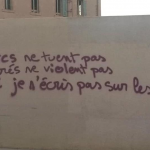 ne tuent pas
ne violent pas
je n'écris pas sur les